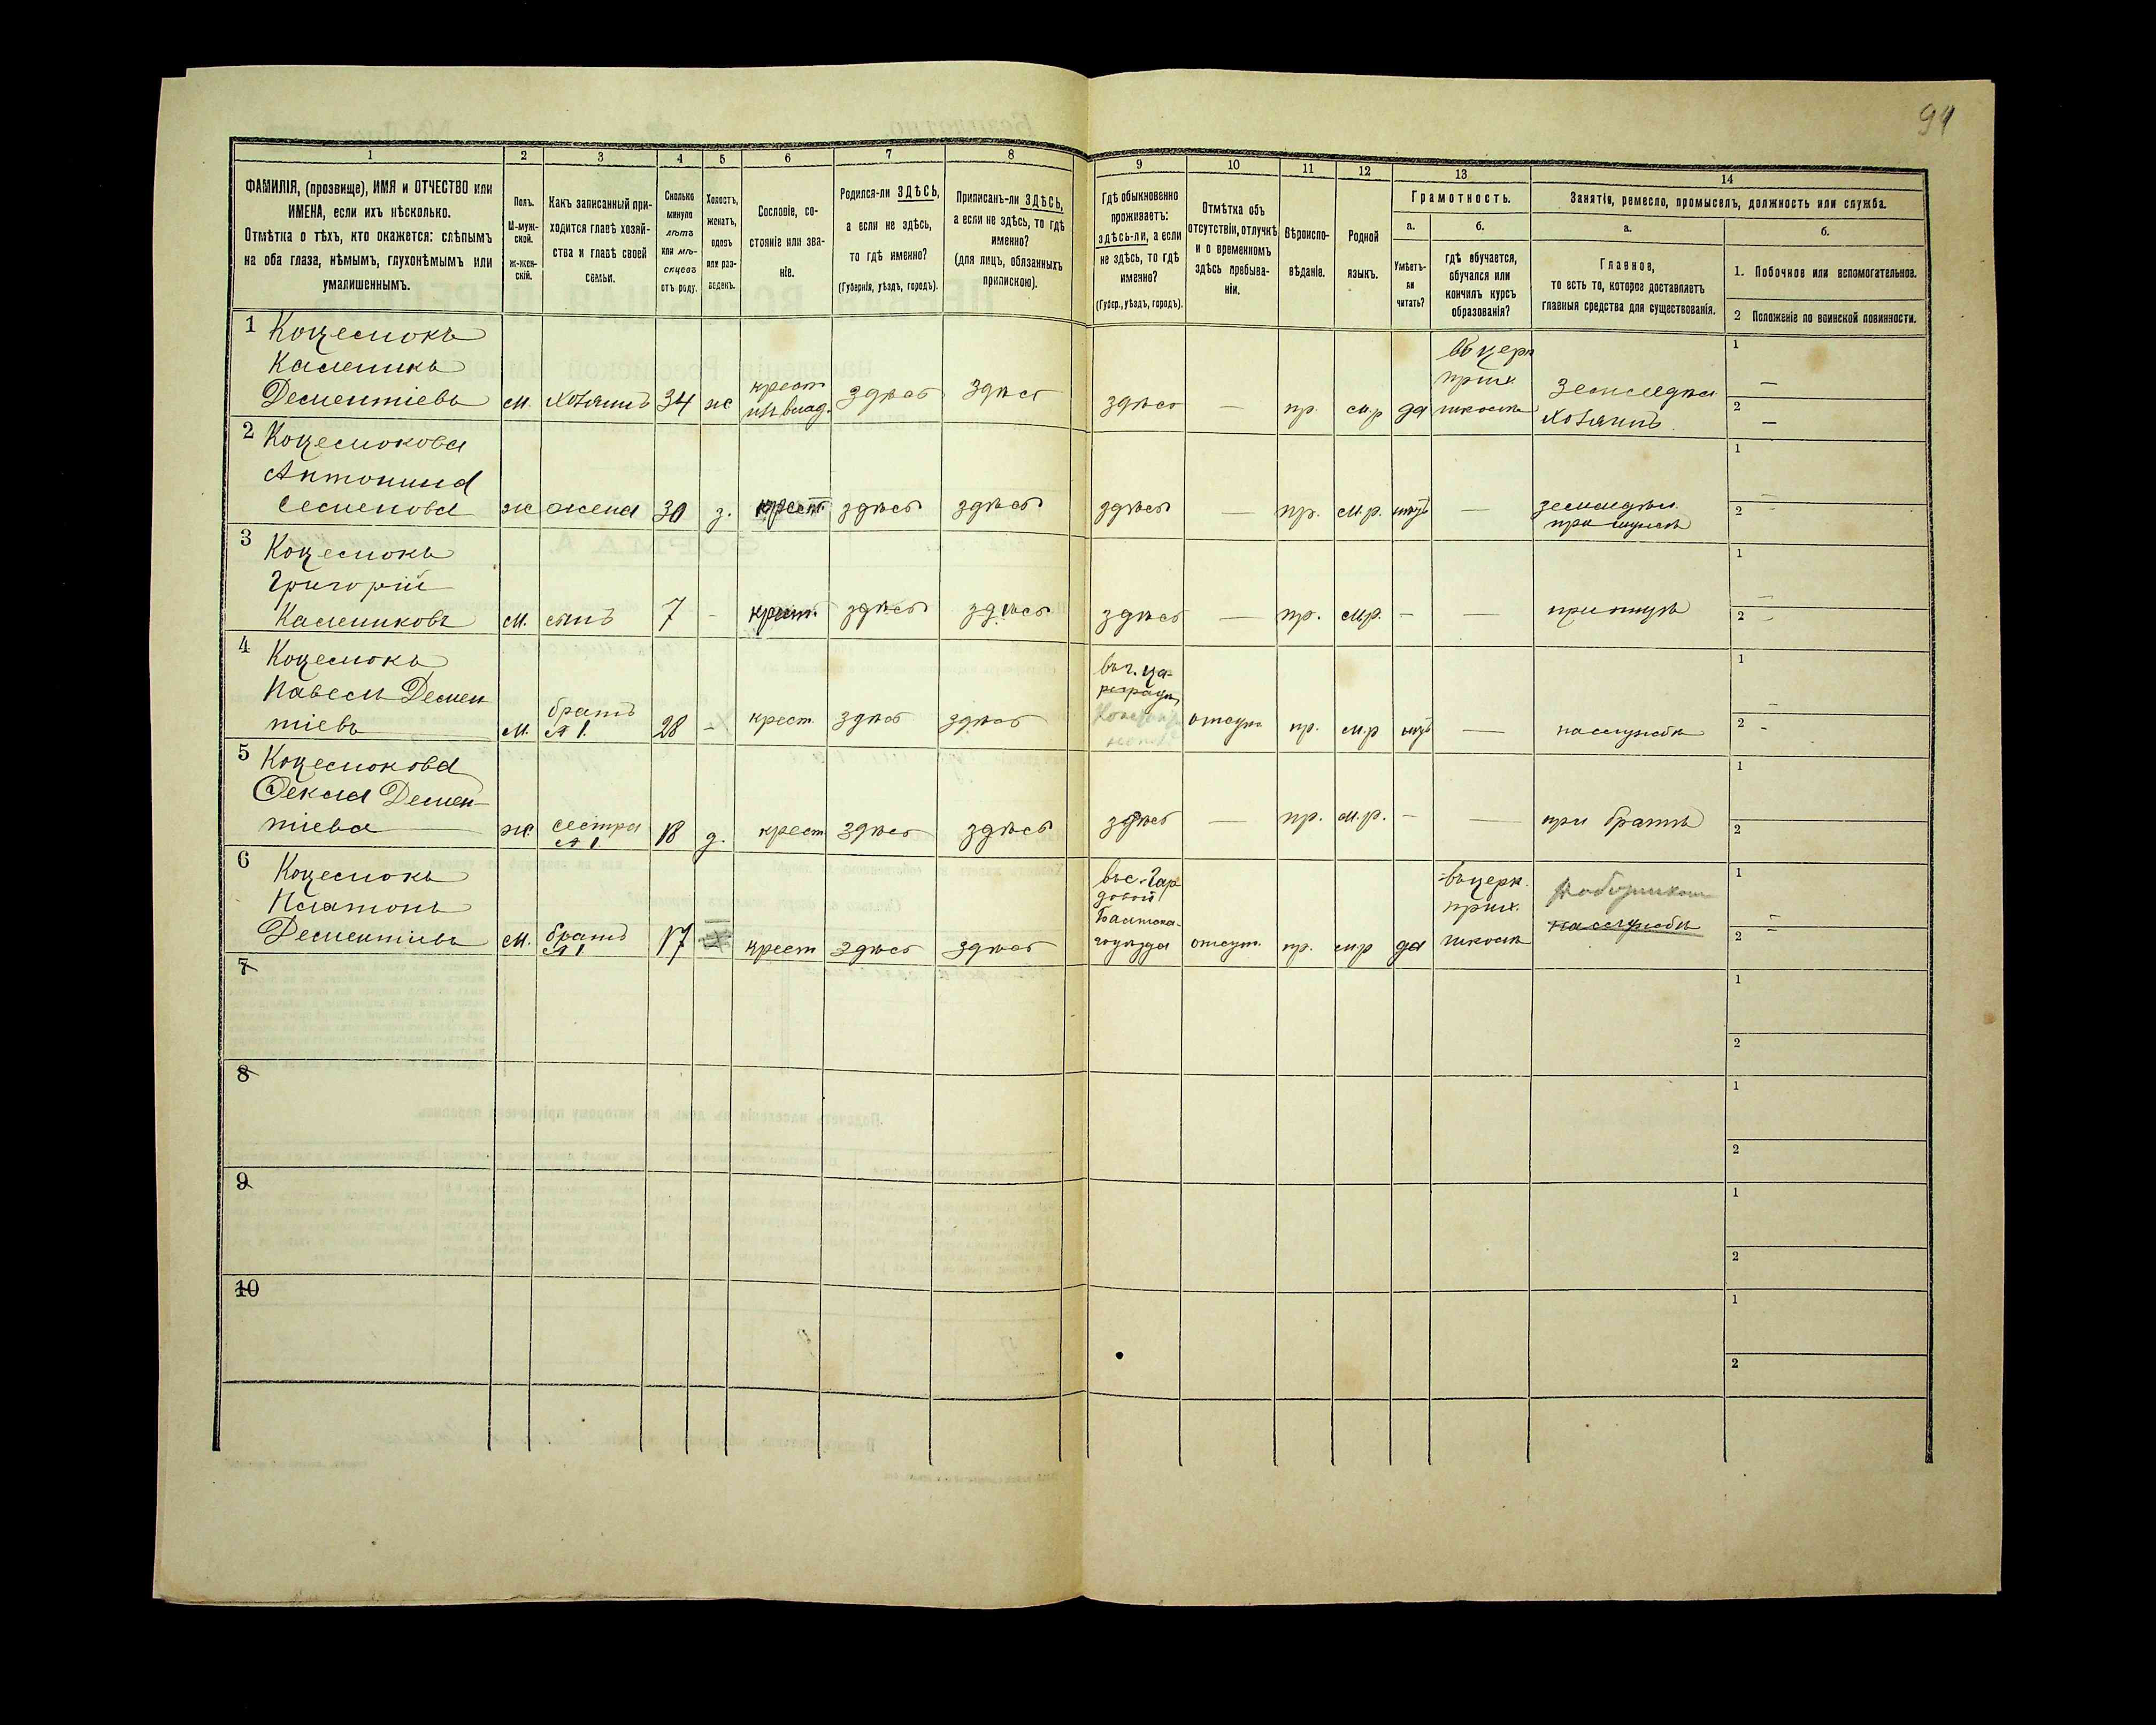 94
1 2 3 4 5 6 7 8 9 10 11 12 13 14
ФАМИЛІЯ, (прозвище), ИМЯ и ОТЧЕСТВО или
ИМЕНА, если ихъ нѣсколько.
Отмѣтка о тѣхъ, кто окажется: слѣпымъ
на оба глаза, нѣмымъ, глухонѣмымъ или
умалишеннымъ.
Полъ.
М-муж-
ской.
Ж-жен-
скій.
Какъ записанный при-
ходится главѣ хозяй-
ства и главѣ своей
семьи.
Сколько
минуло
лѣтъ
или мѣ-
сяцевъ
отъ роду.
Холостъ,
женатъ,
вдовъ
или раз-
веденъ.
Сословіе, со-
стояніе или зва-
ніе.
Родился-ли ЗДѢСЬ,
а если не здѣсь,
то гдѣ именно?
(Губернія, уѣздъ, городъ).
Приписанъ-ли ЗДѢСЬ,
а если не здѣсь, то гдѣ
именно?
(для лицъ, обязанныхъ
припискою).
Гдѣ обыкновенно
проживаетъ:
здѣсь-ли, а если
не здѣсь, то гдѣ
именно?
(Губер., уѣздъ, городъ).
Отмѣтка объ
отсутствіи, отлучкѣ
и о временномъ
здѣсь пребыва-
ніи.
Вѣроиспо-
вѣданіе.
Родной
языкъ.
Грамотность.
а.
Умѣетъ-
ли
читать?
б.
гдѣ обучается,
обучался или
кончилъ курсъ
образованія?
Занятія, ремесло, промыселъ, должность или служба.
а.
Главное,
то есть то, которое доставляетъ
главныя средства для существованія.
б.
1. Побочное или вспомогательное.
2 Положеніе по воинской повинности.
1 Коцемокъ
Каленикъ
Дементіевъ м. хозяинъ 34 ж крест. здѣсь здѣсь здѣсь — пр. м.р да
въ церк
прих.
школѣ
хозяинъ.
1 —
2 —
2 Коцемокова
Антонина
Семенова ж жена 30 з. крест. здѣсь здѣсь здѣсь — пр. м.р. —
1 —
2 -
3 Коцемокъ
Григорій
Калениковъ м. сынъ 7 - крест. здѣсь здѣсь здѣсь — пр. м.р. — —
1 —
2 -
4 Коцемокъ
Павелъ Демен
тіевъ м. братъ
№ 1. 28 - крест. здѣсь здѣсь
въ г. Ца-
отсутв. пр. м.р — на службѣ
1 —
2 -
5 Коцемокова
Фекла Демен-
тіева ж. сестра
№ 1 18 д. крест здѣсь здѣсь здѣсь — пр. м.р. - — при братѣ
1
2
6 Коцемокъ
Платонъ
Дементіевъ м. братъ
№ 1 17 крест здѣсь здѣсь
въ с.
отсут. пр. м.р да
въ церк.
прих.
школѣ
на службѣ
1 —
2 —
7
1
2
8
1
2
9
1
2
10
1
2